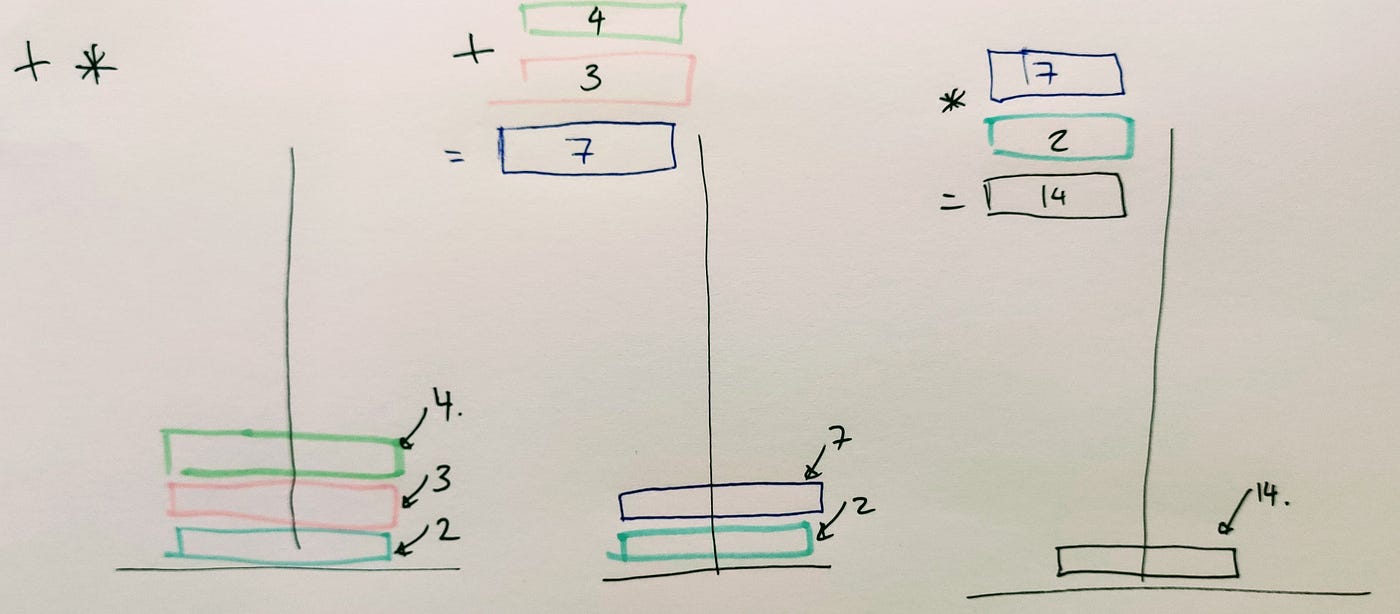 + *
4.
3
2
+ 4
3
= 7
7
2
* 7
2
= 14
14.